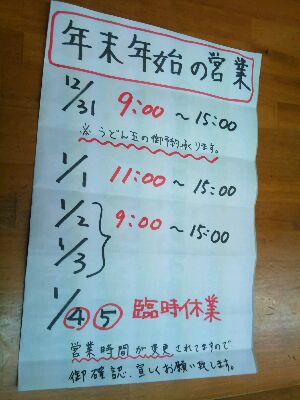 年末年始の営業
12/31 9:00～15:00
※うどん玉の御予約承ります。
1/1 11:00～15:00
1/2
1/3 } 9:00～15:00
1/④⑤ 臨時休業
営業時間が変更されてますので
御確認、宜しくお願い致します。